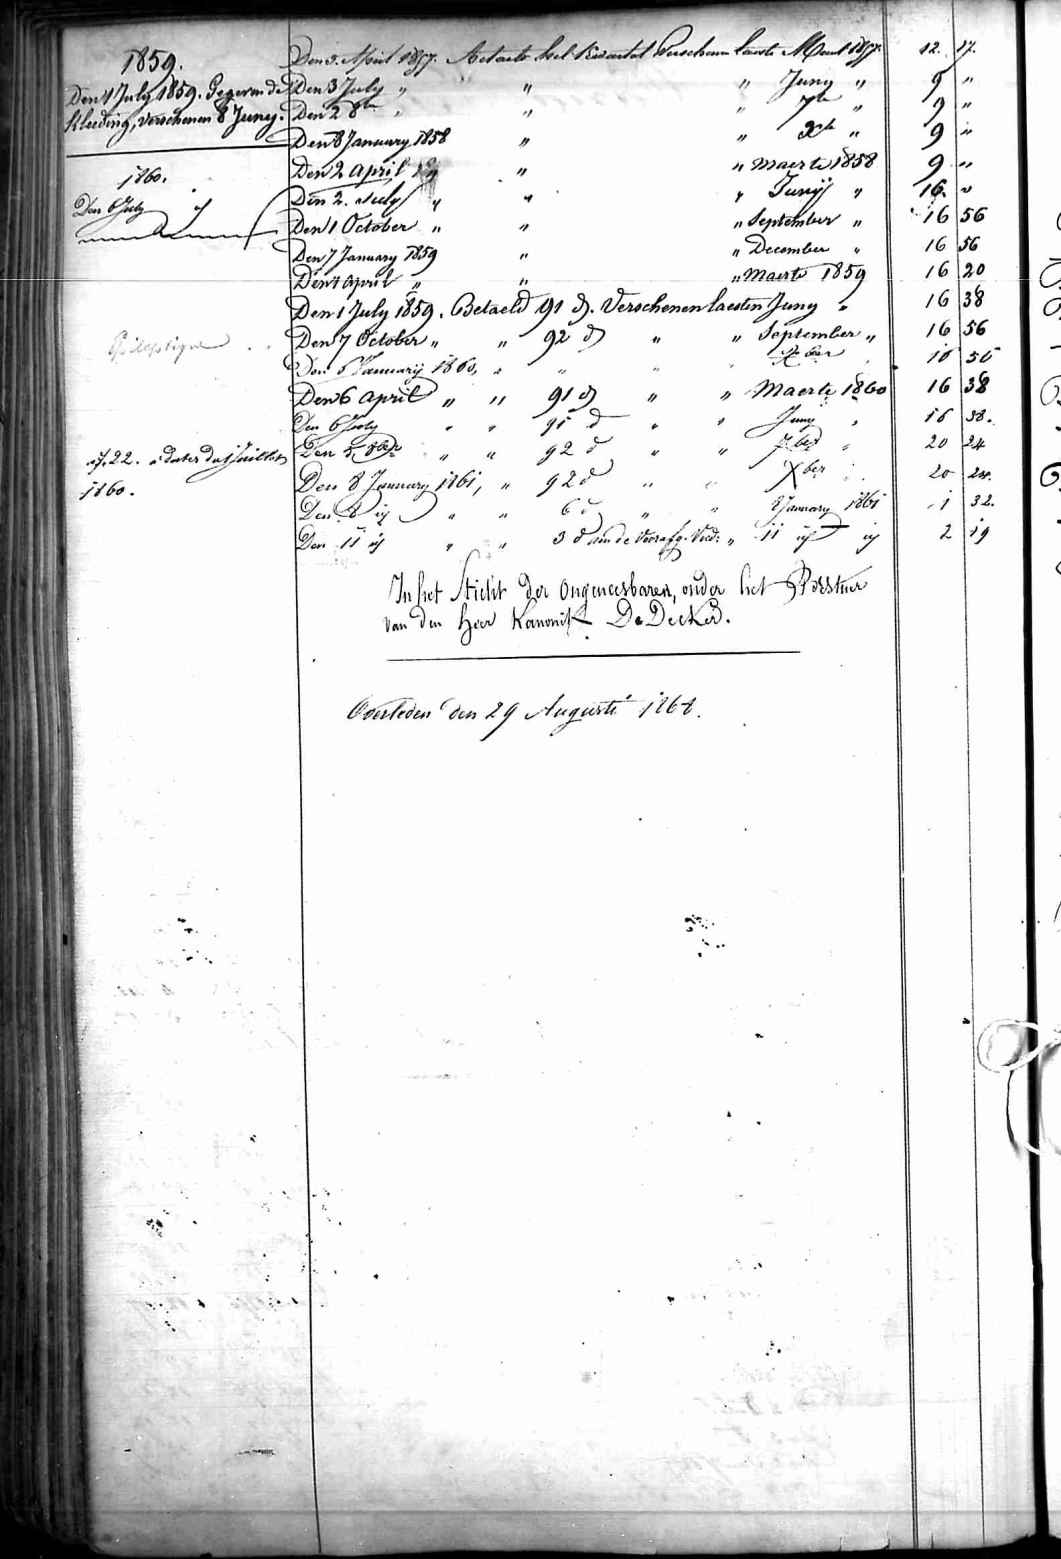 1859.
Den 1 July 1859. Gegeven de
Kleeding, verschenen 8 Juny.
1860.
Den 6 July id
Epileptique
à f. 22. à dater du 1 Juillet
1860.
Den 3. April 1857. Betaelt het Kwartal Verschenen laeste Maart 1857. 12. 17.
Den 3 July " " " Juny " 9 "
Den 2 8bre " " " 7bre " 9 "
Den 8 January 1858 " " Xbre " 9 "
Den 2 April " " Maerte 1858 9 "
Den 2. July " " " Junij " 16. "
Den 1 October " " " September " 16 56
Den 7 January 1859 " " December " 16 56
Den 1 April " " " Maerte 1859 16 20
Den 1 July 1859. Betaeld 91 d. Verschenen laesten Juny " 16 38
Den 7 October " " 92 d " " September " 16 56
Den 6 Januarij 1860, " " " " Xber " 16 56
Den 6 April " " 91 d " " Maerte 1860 16 38
Den 6 July " " 91 d " " Juny " 16 38.
Den 5 8ber " " 92 d " " 7ber " 20 24
Den 8 January 1861, " 92 d " " Xber " 20 24.
Den 8 id " " 6 d " " January 1861 1 32.
Den 11 id " " 3 d aen de " 11 id id 2 19
In het Sticht der Ongeneesbaren, onder het Bestuer
van den Heer Kanonik De Decker.
Overleden den 29 Augusti 1868.